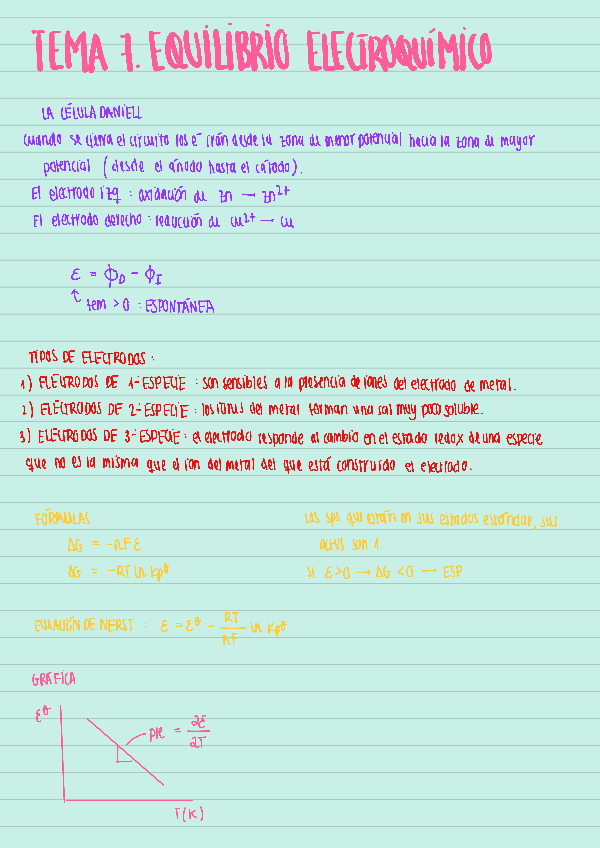 TEMA 7. EQUILIBRIO ELECTROQUÍMICO
LA CÉLULA DANIELL
Cuando se cierra el circuito los e⁻ irán desde la zona de menor potencial hacia la zona de mayor
potencial (desde el ánodo hasta el cátodo).
El electrodo izq : oxidación de Zn — Zn²⁺
El electrodo derecho : reducción de Cu²⁺ — Cu
ε = ϕD - ϕI
↑ tem > 0 : ESPONTÁNEA
TIPOS DE ELECTRODOS :
1) ELECTRODOS DE 1ª ESPECIE : son sensibles a la presencia de iones del electrodo de metal.
2) ELECTRODOS DE 2ª ESPECIE : los iones del metal forman una sal muy poco soluble.
3) ELECTRODOS DE 3ª ESPECIE : el electrodo responde al cambio en el estado redox de una especie
que no es la misma que el ion del metal del que está construido el electrodo.
FÓRMULAS
ΔG = -nFε
ΔG = -RT ln Kpᶿ
Las sps que están en sus estados estándar, sus
activs son 1.
si ε>0 → ΔG <0 — ESP
ECUACIÓN DE NERST : ε = εᶿ - RT/nF ln Kpᶿ
GRÁFICA
εᶿ
pte = ∂ε/∂T
T(K)